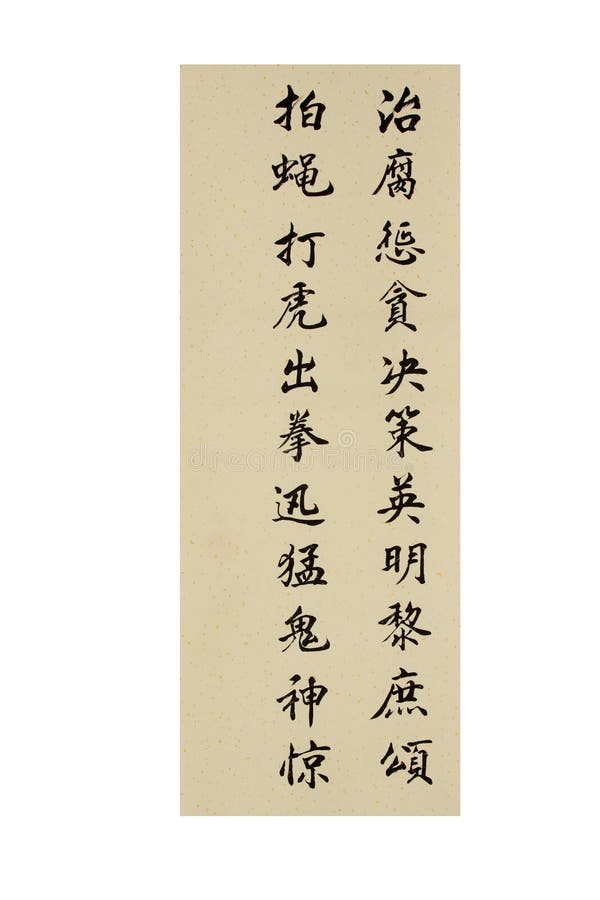 治腐惩贪决策英明黎庶頌
拍蝇打虎出拳迅猛鬼神惊
dreamstime